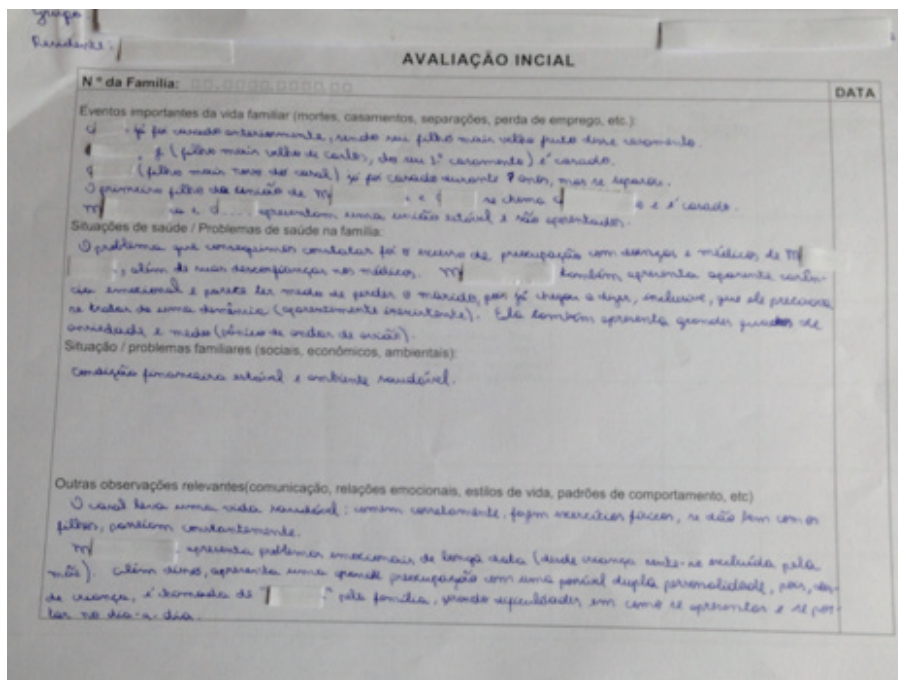 Grupo
Residente:
AVALIAÇÃO INCIAL
N º da Família:
DATA
Eventos importantes da vida familiar (mortes, casamentos, separações, perda de emprego, etc.):
já foi casado anteriormente, sendo seu filho mais velho fruto desse casamento.
(filho mais velho de Carlos, do seu 1º casamento) é casado.
(filho mais novo do casal) já foi casado durante 7 anos, mas se separou.
O primeiro filho da união de M e se chama e é casado.
M e C.... apresentam uma união estável e são aposentados.
Situações de saúde / Problemas de saúde na família:
O problema que conseguimos constatar foi o excesso de preocupação com doenças e médicos de M
, além de suas desconfianças nos médicos. M também apresenta aparente carên-
cia emocional e parece ter medo de perder o marido, pois já chegou a dizer, inclusive, que ele precisava
se tratar de uma demência (aparentemente inexistente). Ela também apresenta grandes quadros de
ansiedade e medo (pânico de andar de avião).
Situação / problemas familiares (sociais, econômicos, ambientais):
Condição financeira estável e ambiente saudável.
Outras observações relevantes(comunicação, relações emocionais, estilos de vida, padrões de comportamento, etc)
O casal leva uma vida saudável: comem corretamente, fazem exercícios físicos, se dão bem com os
filhos, passeiam constantemente.
M apresenta problemas emocionais de longa data (desde criança sente-se excluída pela
mãe). Além disso, apresenta uma grande preocupação com uma possível dupla personalidade, pois, des-
de criança, é chamada de " " pela família, gerando dificuldades em como se apresentar e se por-
tar no dia-a-dia.